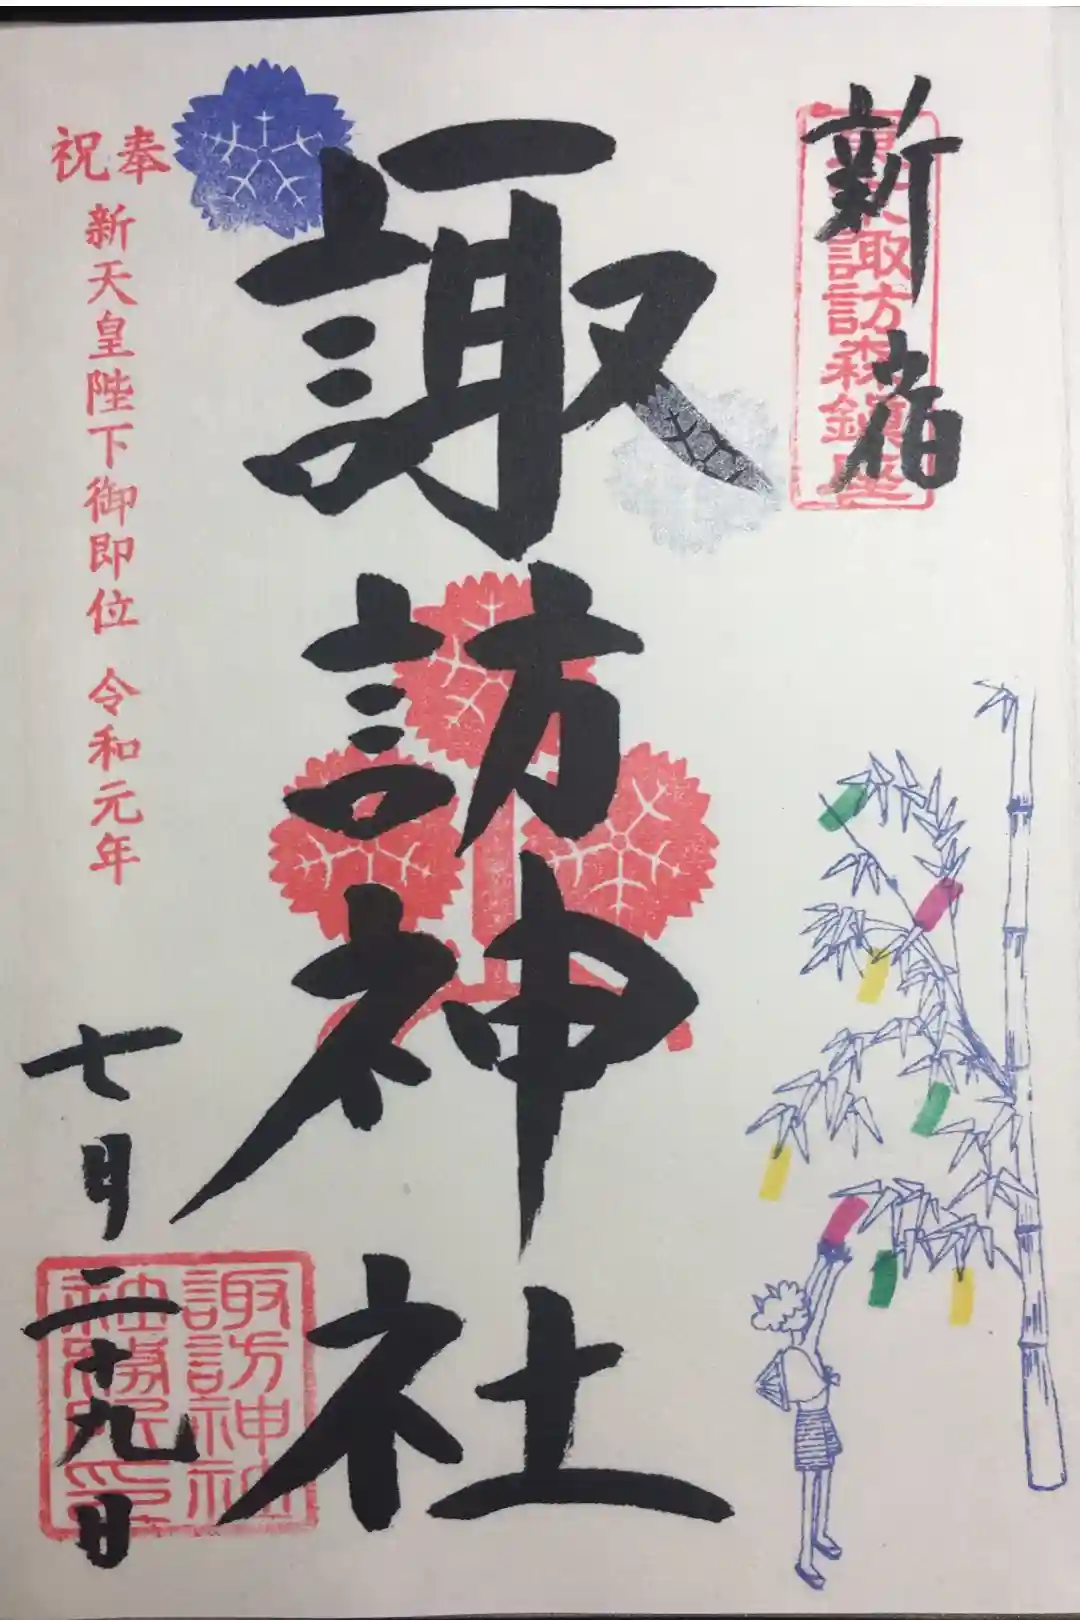 新宿
諏訪森鎭座
諏訪神社
奉祝
新天皇陛下御即位 令和元年
七月二十九日
諏訪神社